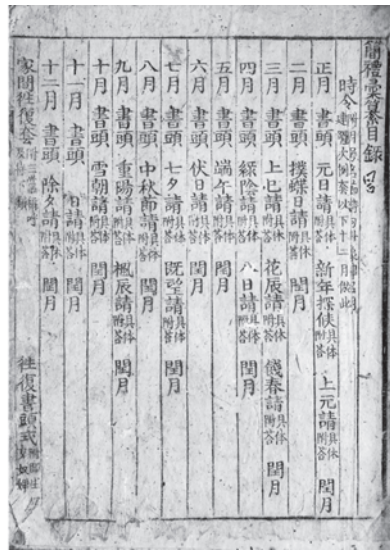 簡禮彙纂目錄
時令
正月 書頭 元日請具体附答 新年探候 上元請具体附答 閏月
二月 書頭 撲蝶日請具体附答 閏月
三月 書頭 上巳請具体附答 花辰請具体附答 餞春請具体附答 閏月
四月 書頭 綠陰請具体附答 八日請具体附答 閏月
五月 書頭 端午請具体附答 閏月
六月 書頭 伏日請具体附答 閏月
七月 書頭 七夕請具体附答 旣望請具体附答 閏月
八月 書頭 中秋節請具体附答 閏月
九月 書頭 重陽請具体附答 楓辰請具体附答 閏月
十月 書頭 雪朝請具体附答 閏月
十一月 書頭 日請具体附答 閏月
十二月 書頭 除夕請具体附答 閏月
家間往復套 往復書頭式